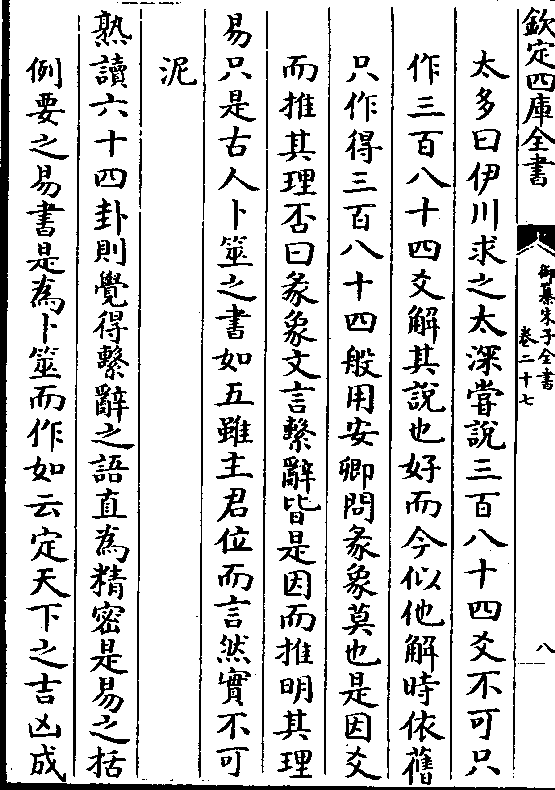 欽定四庫全書
御纂朱子全書
卷二十七
八
太多曰伊川求之太深嘗說三百八十四爻不可只
作三百八十四爻解其說也好而今似他解時依舊
只作得三百八十四般用安卿問彖象莫也是因爻
而推其理否曰彖象文言繫辭皆是因而推明其理
易只是古人卜筮之書如五雖主君位而言然實不可
泥
熟讀六十四卦則覺得繫辭之語直為精密是易之括
例要之易書是為卜筮而作如云定天下之吉凶成